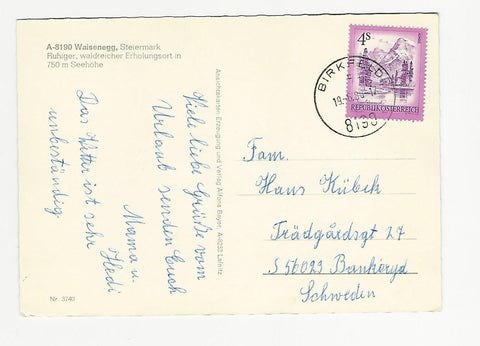 A-8190 Waisenegg, Steiermark
Ruhiger, waldreicher Erholungsort in
750 m Seehöhe
Viele liebe Grüße vom
Urlaub senden Euch
Mama u.
Hedi
Das Wetter ist sehr
unbeständig
Ansichtskarten Erzeugung und Verlag Alfons Bayer, A-8233 Lafnitz
Nr. 3740
4S
REPUBLIK ÖSTERREICH
BIRKFELD
8190
Fam.
Hans Kübek
Trädgårdsgt 27
S 56023 Bankeryd
Schweden